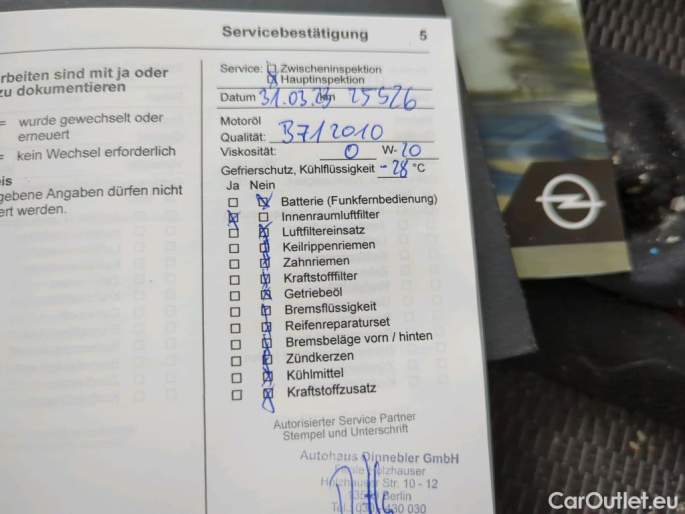 Servicebestätigung 5
rbeiten sind mit ja oder
zu dokumentieren
= wurde gewechselt oder
erneuert
= kein Wechsel erforderlich
eis
gebene Angaben dürfen nicht
ert werden.
Service: Zwischeninspektion
Hauptinspektion
Datum 31.03.23 km 25526
Motoröl
Qualität: B712010
Viskosität: 0 W- 20
Gefrierschutz, Kühlflüssigkeit -28 °C
Ja Nein
Batterie (Funkfernbedienung)
Innenraumluftfilter
Luftfiltereinsatz
Keilrippenriemen
Zahnriemen
Kraftstofffilter
Getriebeöl
Bremsflüssigkeit
Reifenreparaturset
Bremsbeläge vorn / hinten
Zündkerzen
Kühlmittel
Kraftstoffzusatz
Autorisierter Service Partner
Stempel und Unterschrift
Autohaus Dinnebier GmbH
Str. 10 - 12
Berlin
CarOutlet.eu